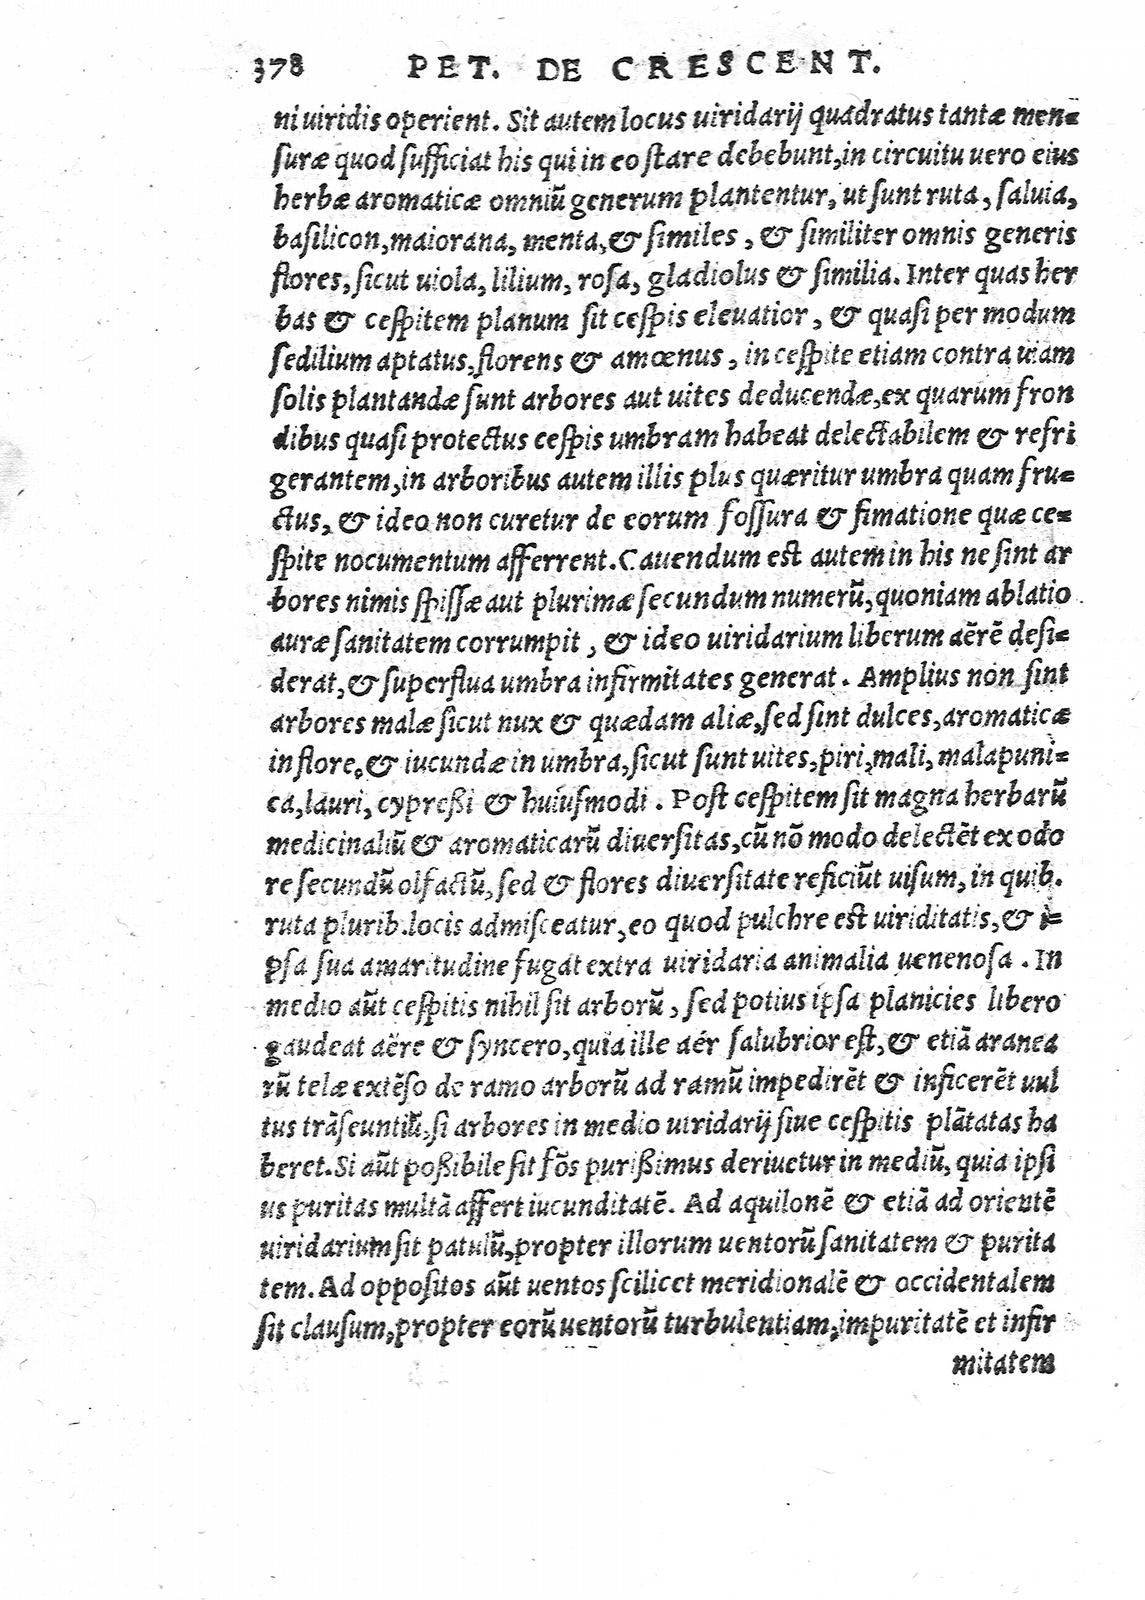 378 PET. DE CRESCENT.
ni uiridis operient. Sit autem locus uiridarij quadratus tantæ men=
ſuræ quod ſufficiat his qui in eo ſtare debebunt, in circuitu uero eius
herbæ aromaticæ omniū generum plantentur, ut ſunt ruta, ſaluia,
baſilicon, maiorana, menta, & ſimiles, & ſimiliter omnis generis
flores, ſicut uiola, lilium, roſa, gladiolus & ſimilia. Inter quas her
bas & ceſpitem planum ſit ceſpis eleuatior, & quaſi per modum
ſedilium aptatus, florens & amœnus, in ceſpite etiam contra uiam
ſolis plantandæ ſunt arbores aut uites deducendæ, ex quarum fron
dibus quaſi protectus ceſpis umbram habeat delectabilem & refri
gerantem, in arboribus autem illis plus quæritur umbra quam fru=
ctus, & ideo non curetur de eorum foſſura & fimatione quæ ce=
ſpite nocumentum afferrent. Cauendum eſt autem in his ne ſint ar
bores nimis ſpiſſæ aut plurimæ ſecundum numerū, quoniam ablatio
auræ ſanitatem corrumpit, & ideo uiridarium liberum aērē deſi=
derat, & ſuperflua umbra infirmitates generat. Amplius non ſint
arbores malæ ſicut nux & quædam aliæ, ſed ſint dulces, aromaticæ
in flore, & iucundæ in umbra, ſicut ſunt uites, piri, mali, malapuni=
ca, lauri, cypreßi & huiuſmodi. Poſt ceſpitem ſit magna herbarū
medicinaliū & aromaticarū diuerſitas, cū nō modo delectēt ex odo
re ſecundū olfactū, ſed & flores diuerſitate reficiūt uiſum, in quib.
ruta plurib. locis admiſceatur, eo quod pulchre eſt uiriditatis, & i=
pſa ſua amaritudine fugat extra uiridaria animalia uenenoſa. In
medio aūt ceſpitis nihil ſit arborū, ſed potius ipſa planicies libero
gaudeat aëre & ſyncero, quia ille aér ſalubrior eſt, & etiā aranea
rū telæ extēſo de ramo arborū ad ramū impedirēt & inficerēt uul
tus trāſeuntiū, ſi arbores in medio uiridarij ſiue ceſpitis plātatas ha
beret. Si aūt poßibile ſit fōs purißimus deriuetur in mediū, quia ipſi
us puritas multā affert iucunditatē. Ad aquilonē & etiā ad orientē
uiridarium ſit patulū, propter illorum uentorū ſanitatem & purita
tem. Ad oppoſitos aūt uentos ſcilicet meridionalē & occidentalem
ſit clauſum, propter eorū uentorū turbulentiam, impuritatē et infir
mitatem